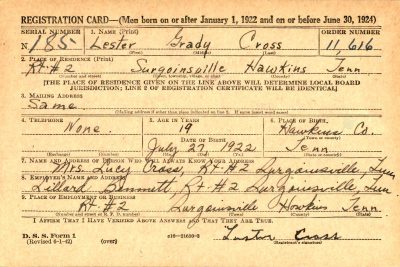 REGISTRATION CARD—(Men born on or after January 1, 1922 and on or before June 30, 1924)
SERIAL NUMBER 1. NAME (Print) ORDER NUMBER
N 185 Lester Grady Cross 11,616
(First) (Middle) (Last)
2. PLACE OF RESIDENCE (Print)
Rt #2 Surgoinsville Hawkins Tenn
(Number and street) (Town, township, village, or city) (County) (State)
[THE PLACE OF RESIDENCE GIVEN ON THE LINE ABOVE WILL DETERMINE LOCAL BOARD
JURISDICTION; LINE 2 OF REGISTRATION CERTIFICATE WILL BE IDENTICAL]
3. MAILING ADDRESS
Same
[Mailing address if other than place indicated on line 2. If same insert word same]
4. TELEPHONE 5. AGE IN YEARS 6. PLACE OF BIRTH
None 19 Hawkins Co.
DATE OF BIRTH (Town or county)
July 27, 1922 Tenn
(Exchange) (Number) (Mo.) (Day) (Yr.) (State or country)
7. NAME AND ADDRESS OF PERSON WHO WILL ALWAYS KNOW YOUR ADDRESS
Mrs. Lucy Cross, Rt #2 Surgoinsville, Tenn
8. EMPLOYER'S NAME AND ADDRESS
Lillard Bennett Rt #2 Surgoinsville, Tenn
9. PLACE OF EMPLOYMENT OR BUSINESS
Rt #2 Surgoinsville Hawkins Tenn
(Number and street or R. F. D. number) (Town) (County) (State)
I AFFIRM THAT I HAVE VERIFIED ABOVE ANSWERS AND THAT THEY ARE TRUE.
D. S. S. Form 1
(Revised 6-1-42) (over) Cross
(Registrant's signature)